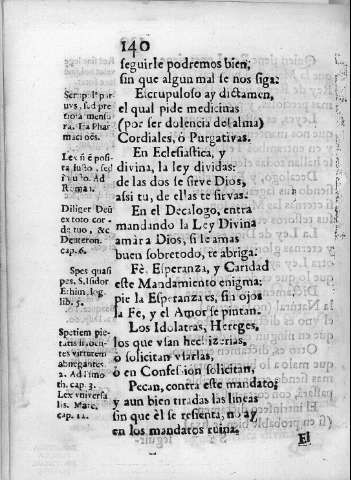 140
seguirle podremos bien;
sin que algun mal se nos siga:
Escrupuloso ay dictamen,
el qual pide medicinas
(por ser dolencia del alma)
Cordiales, ò Purgativas.
En Eclesiastica, y
divina, la ley dividas:
de las dos se sirve Dios,
assi tu, de ellas te sirvas.
En el Decalogo, entra
mandando la Ley Divina
amar a Dios, si le amas
buen sobretodo, te abriga:
Fè, Esperanza, y Caridad
este Mandamiento enigma:
pie la Esperanza es, sin ojos
la Fe, y el Amor se pintan.
Los Idolatras, Hereges,
los que vían hechizerias,
ò solicitan vsarlas,
ò en Confession solicitan,
Pecan, contra este mandato;
y aun bien tiradas las lineas
sin que èl se resienta, no ay
en los mandatos ruina,
El
Scrup. l' par
uvs, sed pre
mensu
ra. Phar
maci
Lex posi
ta iusto, sed
Ad
Roma 1.
Diliger Deũ
ex toto cor-
de tuo, &c
Deuteron.
cap. 6.
Spes quasi
pes. S. Isidor
Ethim log.
lib. 5.
Speciem pie-
tatis
tes virtutem
abnegantes
2. Ad
th. cap. 3.
Lex vniversa
lis. Matt.
cap. 22.